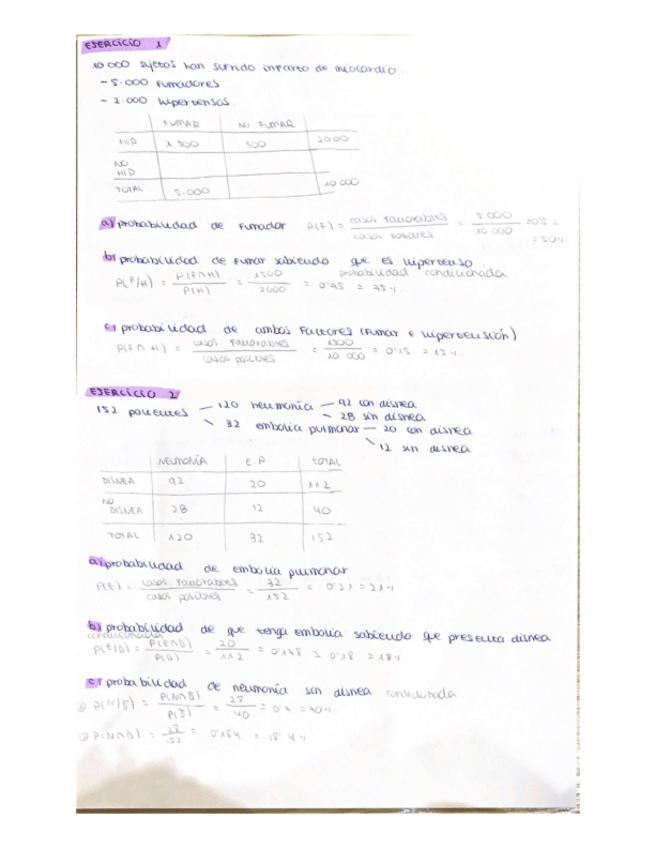 EJERCICIO 1
10 000 sujetos han sufrido infarto de miocardio.
- 5.000 fumadores
- 2.000 hipertensos.
FUMAR NO FUMAR
HID 1500 500 2000
NO HID
TOTAL 5.000 10 000
a) probabilidad de fumador P(F) = casos favorables / casos totales = 5 000 / 10 000 = 0'5 = 50%
b) probabilidad de fumar sabiendo que es hipertenso.
probabilidad condicionada
P(F/H) = P(F∩H) / P(H) = 1500 / 2000 = 0'75 = 75%.
c) probabilidad de ambos factores (fumar e hipertensión)
P(F∩H) = casos favorables / casos posibles = 1500 / 10 000 = 0'15 = 15%.
EJERCICIO 2
152 pacientes — 120 neumonía — 92 con disnea
28 sin disnea
32 embolia pulmonar — 20 con disnea
12 sin disnea
NEUMONÍA E.P TOTAL
DISNEA 92 20 112
NO DISNEA 28 12 40
TOTAL 120 32 152
a) probabilidad de embolia pulmonar
P(E) = casos favorables / casos posibles = 32 / 152 = 0'21 = 21%
b) probabilidad de que tenga embolia sabiendo que presenta disnea
condicionada
P(E/D) = P(E∩D) / P(D) = 20 / 112 = 0'178 ≃ 0'18 = 18%
c) probabilidad de neumonía sin disnea condicionada
① P(N/D̄) = P(N∩D̄) / P(D̄) = 28 / 40 = 0'7 = 70%
② P(N∩D̄) = 28 / 152 = 0'184 = 18'4%